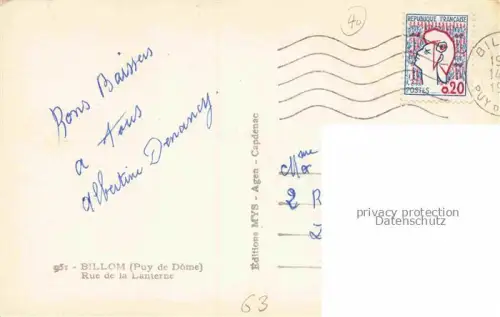 40
REPUBLIQUE FRANÇAISE
POSTES 0.20
BIL
PUY D
Bons Baisers
a tous
Albertine
Mme
2 R
privacy protection
Datenschutz
Editions MYS - Agen - Capdenac
951 - BILLOM (Puy de Dôme)
Rue de la Lanterne
63